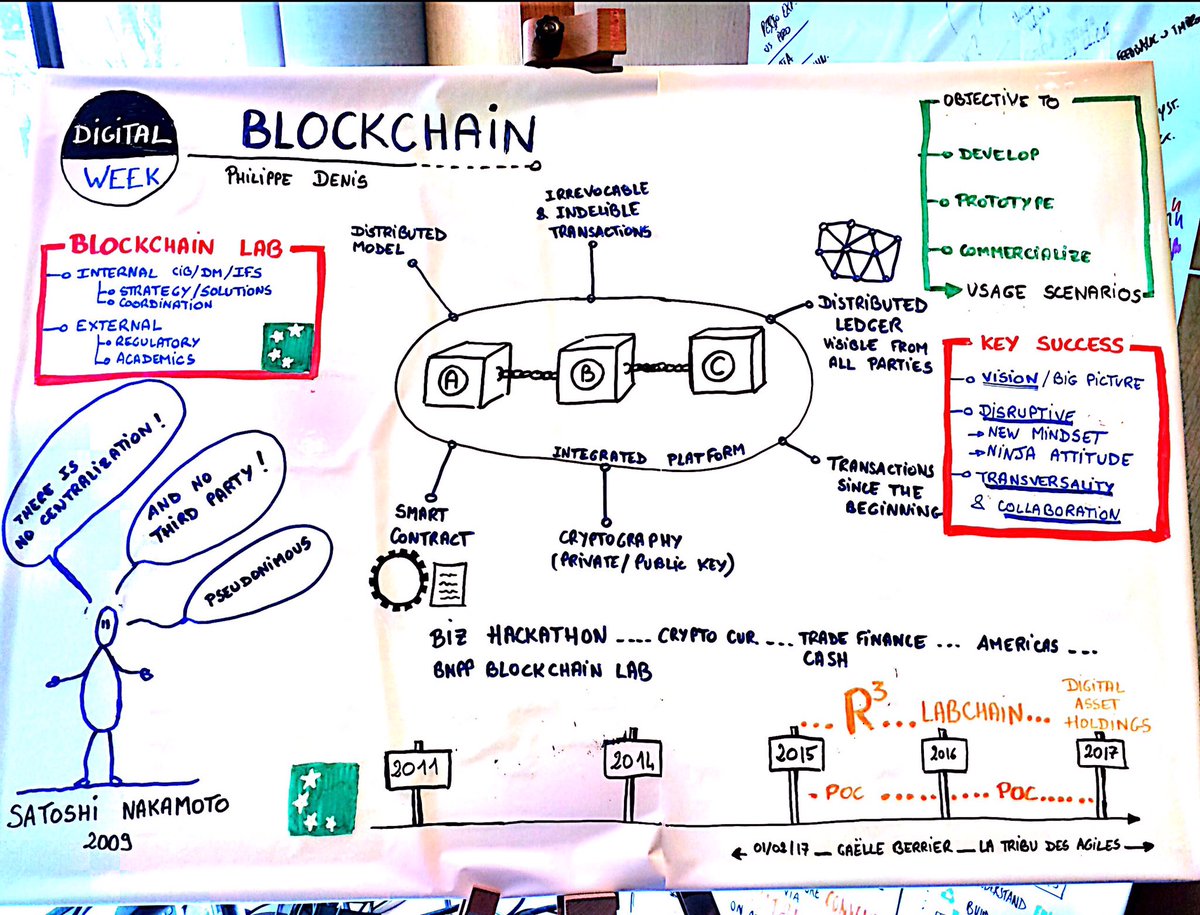 DIGITAL
WEEK
BLOCKCHAIN
PHILIPPE DENIS
BLOCKCHAIN LAB
INTERNAL CIB/DM/IFS
STRATEGY/SOLUTIONS
COORDINATION
EXTERNAL
REGULATORY
ACADEMICS
DISTRIBUTED
MODEL
IRREVOCABLE
& INDELIBLE
TRANSACTIONS
DISTRIBUTED
LEDGER
VISIBLE FROM
ALL PARTIES
A
B
C
INTEGRATED PLATFORM
SMART
CONTRACT
CRYPTOGRAPHY
(PRIVATE/PUBLIC KEY)
TRANSACTIONS
SINCE THE
BEGINNING
OBJECTIVE TO
DEVELOP
PROTOTYPE
COMMERCIALIZE
USAGE SCENARIOS
KEY SUCCESS
VISION/BIG PICTURE
DISRUPTIVE
→NEW MINDSET
→NINJA ATTITUDE
TRANSVERSALITY
& COLLABORATION
THERE IS
NO CENTRALIZATION!
AND NO
THIRD PARTY!
PSEUDONIMOUS
SATOSHI NAKAMOTO
2009
BIZ HACKATHON .... CRYPTO CUR ... TRADE FINANCE ... AMERICAS ...
CASH
BNPP BLOCKCHAIN LAB
... R³... LABCHAIN...
DIGITAL
ASSET
HOLDINGS
2011
2014
2015
2016
2017
. POC ........... POC......
01/02/17 _ GAËLLE BERRIER _ LA TRIBU DES AGILES